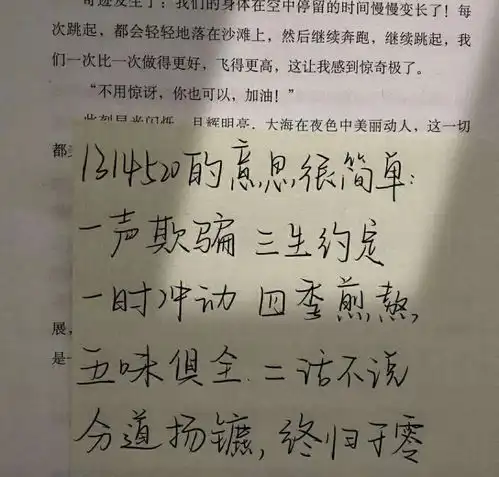 奇迹发生了：我们的身体在空中停留的时间慢慢变长了！每
次跳起，都会轻轻地落在沙滩上，然后继续奔跑，继续跳起，我
们一次比一次做得更好，飞得更高，这让我感到惊奇极了。
“不用惊讶，你也可以，加油！”
此刻星光闪烁，月辉明亮，大海在夜色中美丽动人，这一切
都
1314520的意思很简单：
一声欺骗 三生约定
一时冲动 四季煎熬,
展，
五味俱全.二话不说
是一
分道扬镳,终归于零